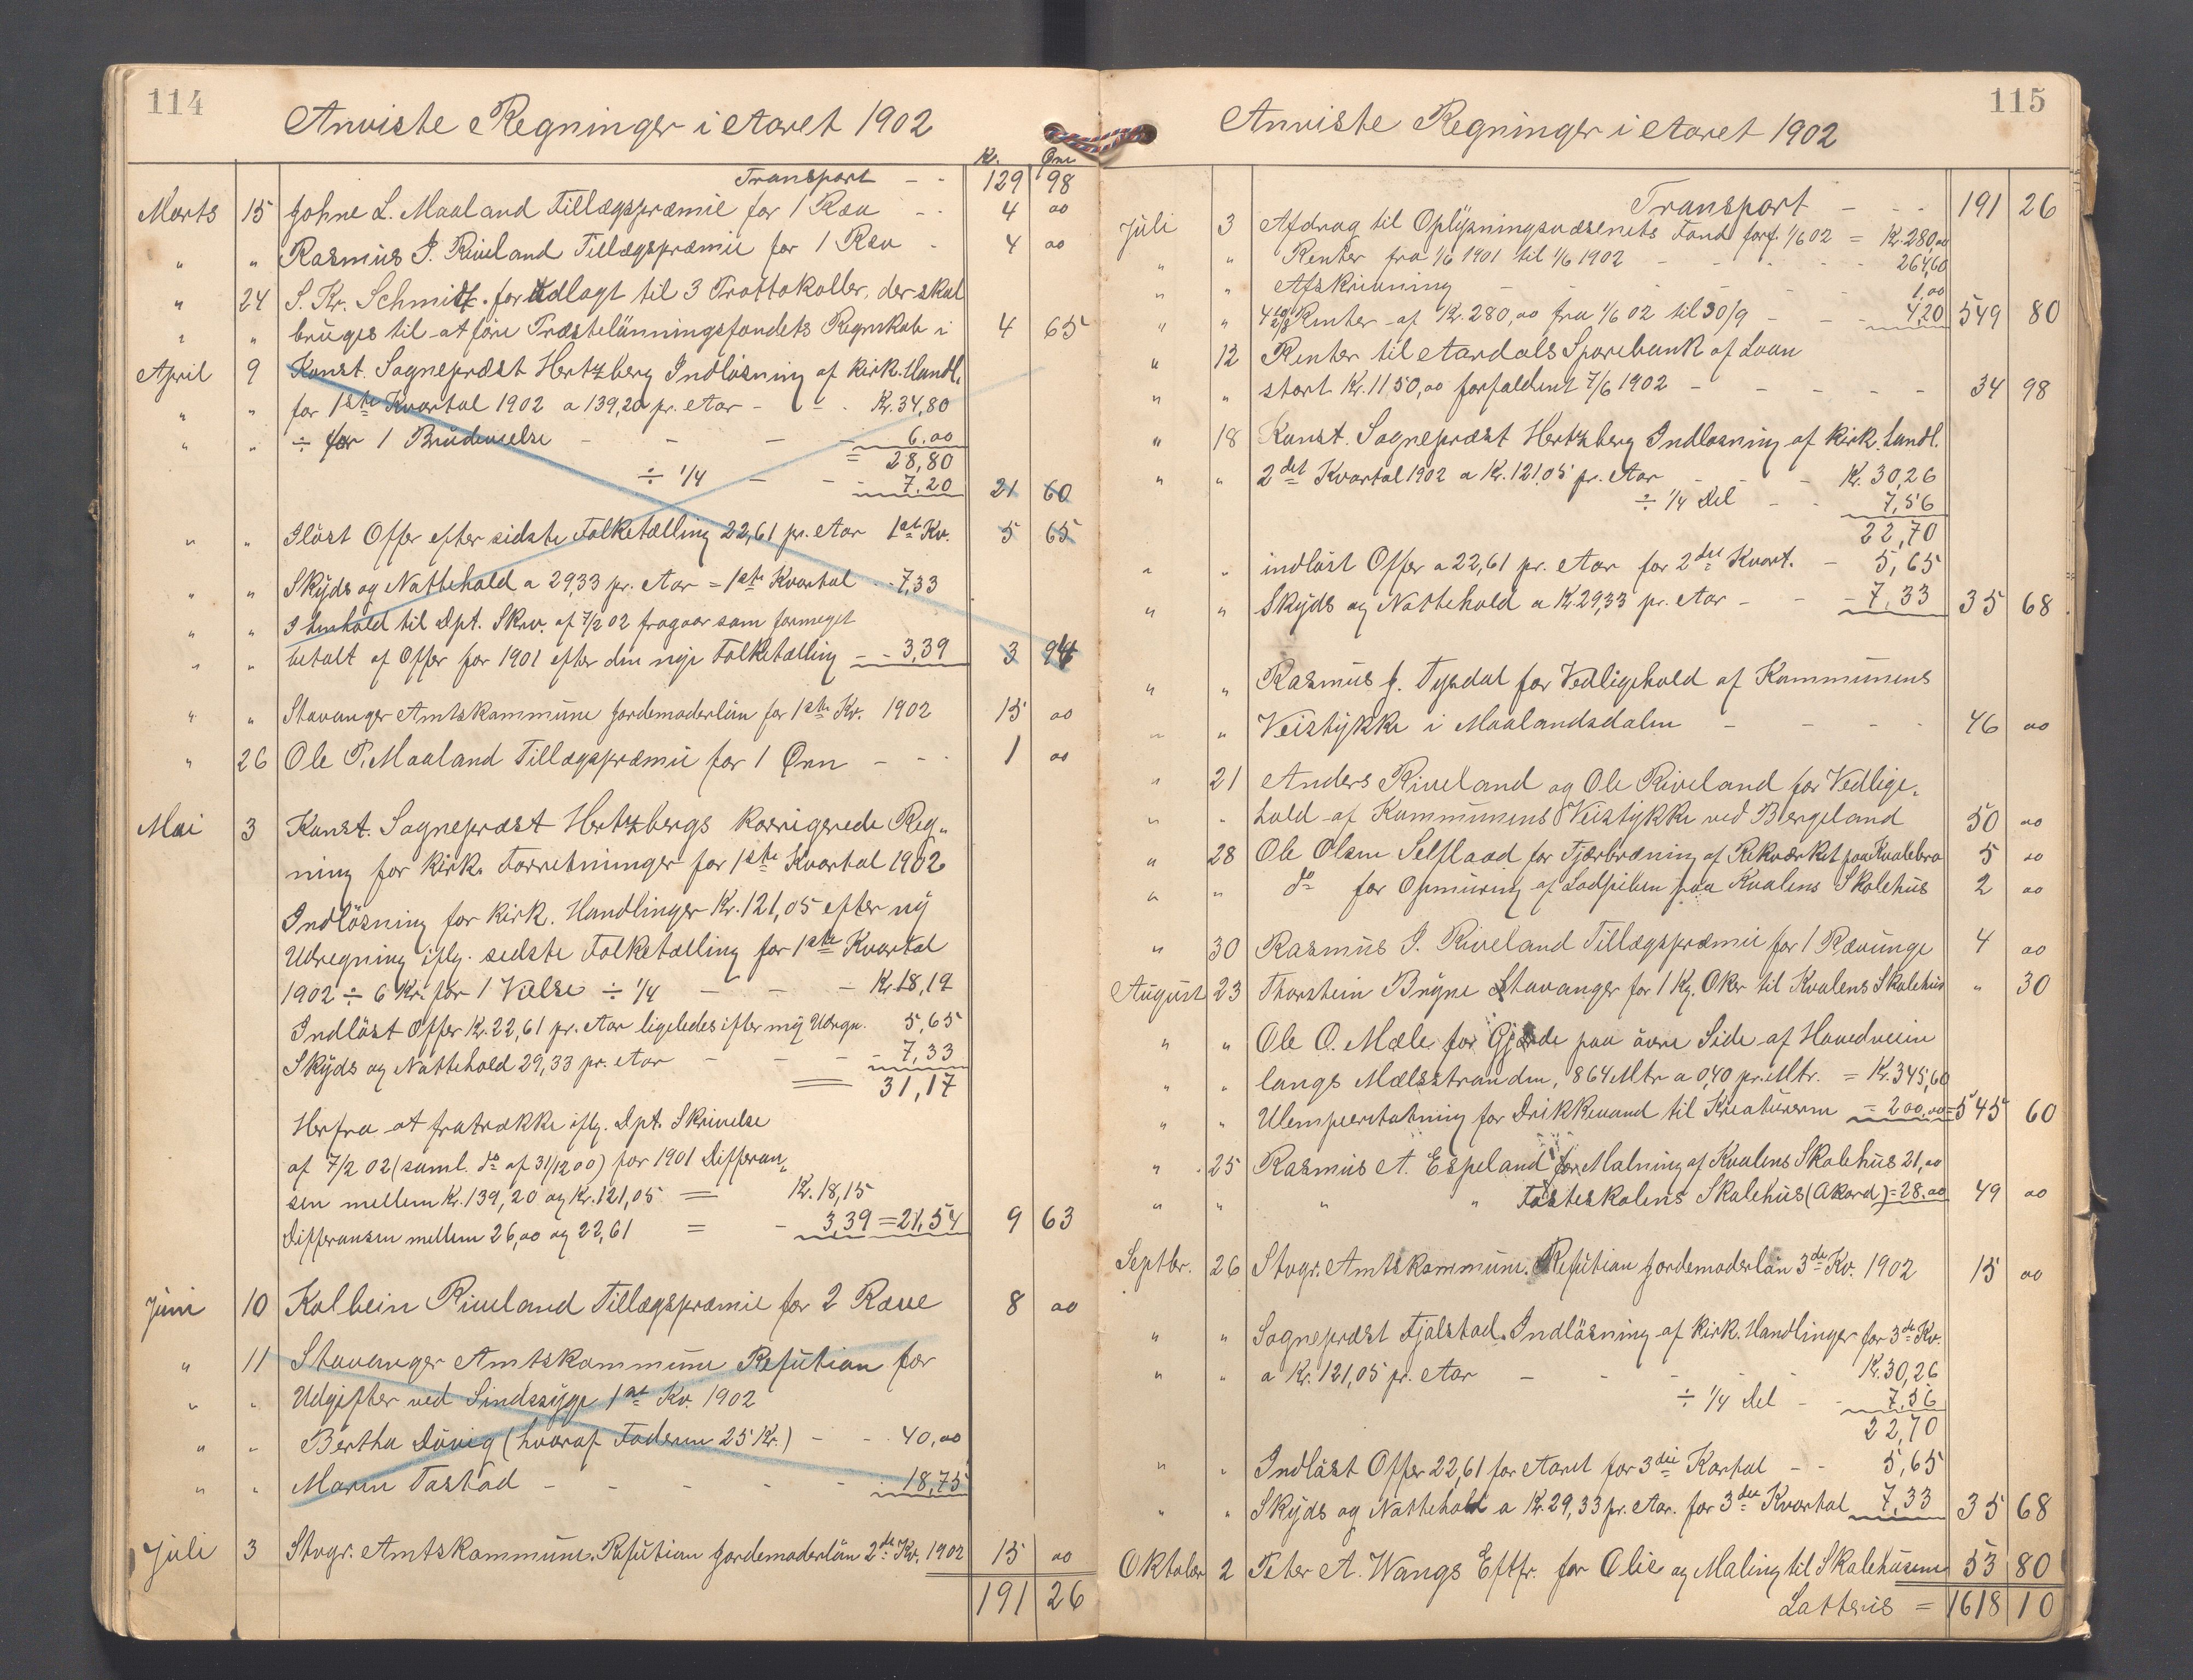 114
Anviste Regninger i Aaret 1902
Kr. Øre
Transport - - 129 98
Marts 15 Johne L. Maaland Tillægspræmie for 1 Ræv - - 4 00
" " Rasmus J. Riveland Tillægspræmie for 1 Ræv - 4 00
" 24 S. Kr. Schmidt for Udlagt til 3 Prottokoller, der skal
" " bruges til at före Præstelönningsfondets Regnskab i 4 65
April 9 Konst. Sognepræst Hertzberg Indlösning af kirk. Handl.
" " for 1ste Kvartal 1902 a 139,20 pr. Aar - - - Kr. 34,80
" " ÷ for 1 Brudevielse - - - - 6.00
= 28,80
÷ 1/4 - - - 7.20 21 60
" " Ilöst Offer efter sidste Folketælling 22,61 pr. Aar 1ste Kv. 5 65
" " Skyds og Nattehold a 29,33 pr. Aar = 1ste Kvartal - - 7,33
" " I Henhold til Dpt. Skriv. af 7/2 02 fragaar som formeget
" " betalt af Offer for 1901 efter den nye Folketælling - - 3,39 3 94
" " Stavanger Amtskommune Jordemoderlön for 1ste Kv. 1902 15 00
" 26 Ole P. Maaland Tillægspræmie for 1 Ørn - - - 1 00
Mai 3 Konst. Sognepræst Hertzbergs korrigerede Reg-
ning for kirk. Forretninger for 1ste Kvartal 1902
Indlösning for kirk. Handlinger Kr. 121,05 efter ny
Udregning iflg. sidste Folketælling for 1ste Kvartal
1902 ÷ 6 Kr. for 1 Vielse ÷ 1/4 - - - Kr. 18,19
Indlöst Offer Kr. 22,61 pr. Aar ligeledes efter ny Udregn. 5,65
Skyds og Nattehold 29,33 pr. Aar - - - - 7,33
= 31,17
Herfra at fratrække iflg. Dpt. Skrivelse
af 7/2 02 (saml. do af 31/12 00) for 1901 Differan-
sen mellem Kr. 139,20 og Kr. 121,05 = Kr. 18,15
Differansen mellem 26,00 og 22,61 = - 3,39 = 21,54 9 63
Juni 10 Kolbein Riveland Tillægspræmie for 2 Ræve 8 00
" 11 Stavanger Amtskommune Refution for
" " Udgifter ved Sindssyge 1ste Kv. 1902
" " Bertha Dövig (hvoraf Faderen 25 Kr.) - - - 40,00
" " Maren Tastad - - - - - 18,75
Juli 3 Stvgr. Amtskommune. Refution Jordemoderlön 2det Kv. 1902 15 00
191 26
115
Anviste Regninger i Aaret 1902
Transport - - - 191 26
Juli 3 Afdrag til Oplysningsvæsenets Fond forf. 1/6 02 = Kr. 280,00
" " Renter fra 1/6 1901 til 1/6 1902 - - - - 264,60
" " Afskrivning - - - - - 1,00
" " Renter af Kr. 280,00 fra 1/6 02 til 30/9 - - - 4,20 549 80
" 12 Renter til Aardals Sparebank af Laan
" " stort Kr. 1150,00 forfaldent 7/6 1902 - - - - - 34 98
" 18 Konst. Sognepræst Hertzberg Indlösning af kirk. Handl.
" " 2det Kvartal 1902 a Kr. 121,05 pr. Aar - - - Kr. 30,26
÷ 1/4 Del - - 7,56
22,70
" " indlöst Offer a 22,61 pr. Aar for 2det Kvart. - 5,65
" " Skyds og Nattehold a Kr. 29,33 pr. Aar - - - 7,33 35 68
" " Rasmus J. Tysdal for Vedligehold af Kommunens
" " Veistykke i Maalandsdalen - - - - 46 00
" 21 Anders Riveland og Ole Riveland for Vedlige-
" " hold af Kommunens Veistykke ved Bergeland 50 00
" 28 Ole Olsen Selflaad for Tjærbræning af Rekværket paa Kvalebro 5 00
" " do for Opmuring af Lodpiben paa Kvalens Skolehus 2 00
" 30 Rasmus J. Riveland Tillægspræmie for 1 Rævunge 4 00
August 23 Thorstein Bryne Stavanger for 1 Kg. Oker til Kvalens Skolehus " 30
" " Ole O. Mæle for Gjærde paa övre Side af Hovedveien
" " langs Mælsstranden, 864 Mtr a 0,40 pr. Mtr. = Kr. 345,60
" " Ulempeerstatning for Drikkevand til Kreaturerne = 200,00 = 545 60
" 25 Rasmus A. Espeland for Malning af Kvalens Skolehus 21,00
" " " " Fösteskolens Skolehus (Akord) = 28.00 49 00
Septbr. 26 Stvgr. Amtskommune. Refution Jordemoderlön 3de Kv. 1902 15 00
" " Sognepræst Fjalstad. Indlösning af kirk. Handlinger for 3de Kv.
" " a Kr. 121,05 pr. Aar - - - - Kr. 30,26
÷ 1/4 Del - - 7,56
22,70
" " Indlöst Offer 22,61 for Aaret for 3die Kvartal - - 5,65
" " Skyds og Nattehold a Kr. 29,33 pr. Aar. for 3die Kvartal 7,33 35 68
Oktober 2 Peter A. Wangs Eftfr. for Olie og Maling til Skolehusene 53 80
Latteris = 1618 10